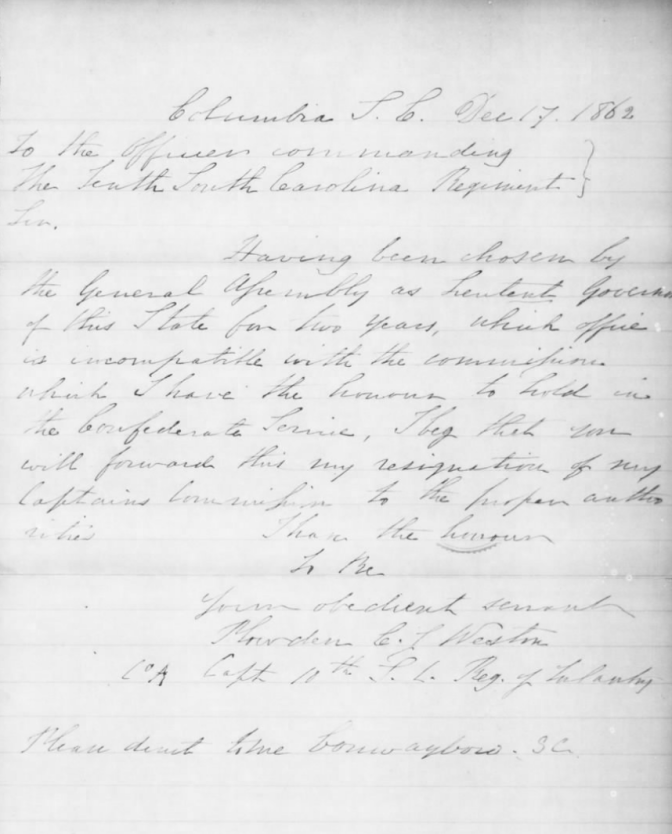 Columbia S. C. Dec 17. 1862
To the Officer commanding
the Tenth South Carolina Regiment
Sir.
Having been chosen by
the General Assembly as Lieutent Govern
of this State for two years, which office
is incompatible with the commission
which I have the honour to hold in
the Confederate Service, I beg that you
will forward this my resignation of my
Captains Commission to the proper autho
rities I have the honour
to Be
Your obedient servant
Plowden C. J Weston
Co A Capt 10th S. C. Reg. of Infantry
Please direct to me Conwayboro. SC.